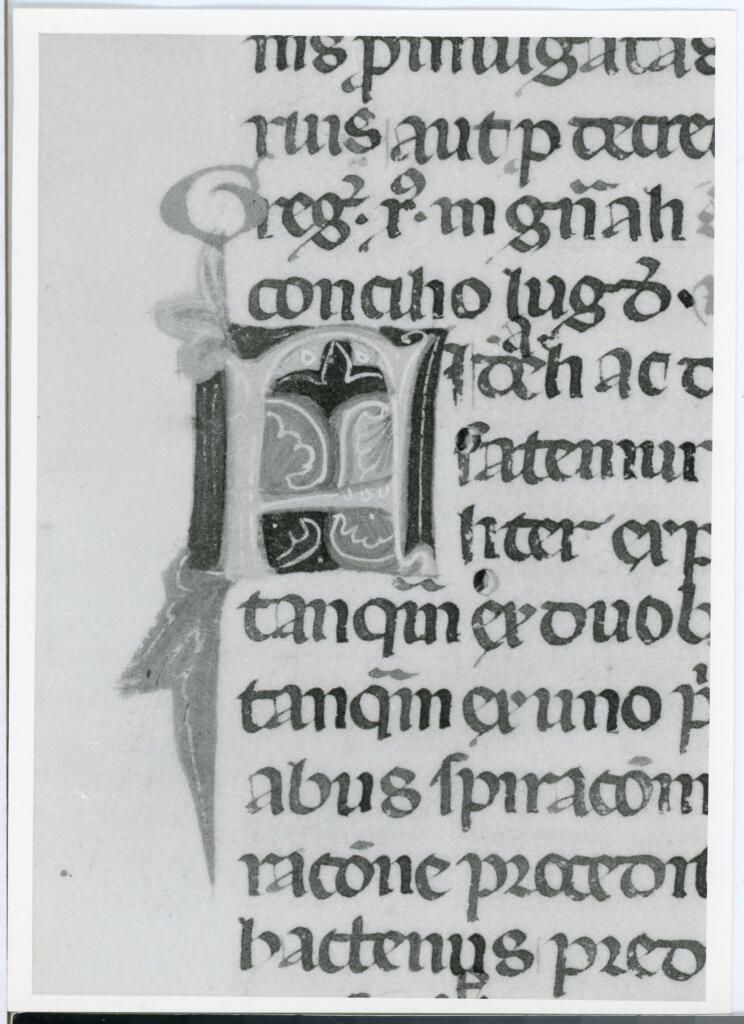 nis pmulgatas
ruis aut p decre
Greg. x. in gnali
concilio lugd.
Fideli ac d
fatemur
liter ex p
tanqm ex duob
tanqm ex uno p
abus spiracom
racone procedit
hactenus pred